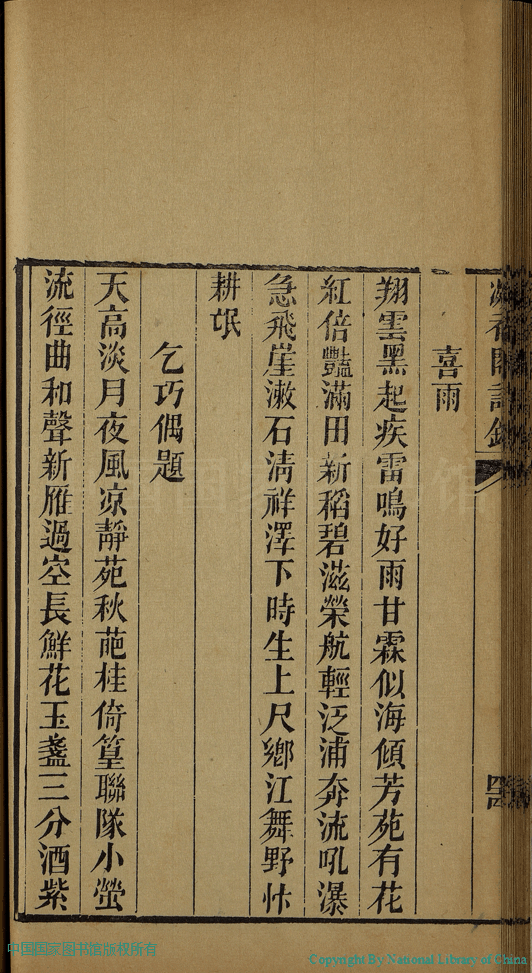 喜雨
翔雲黑起疾雷鳴好雨甘霖似海傾芳苑有花
紅倍豔滿田新稻碧滋榮航輕泛浦奔流吼瀑
急飛崖漱石清祥澤下時生上尺鄉江舞野忭
耕氓
乞巧偶題
天高淡月夜風凉靜苑秋葩桂倚篁聯隊小螢
流徑曲和聲新雁過空長鮮花玉盞三分酒紫
中国国家图书馆版权所有
Copyright By National Library of China